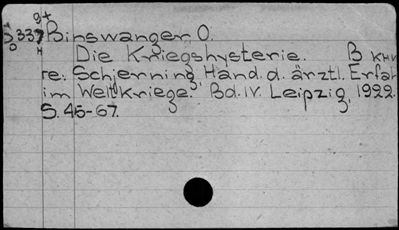 9+
5337 Binswanger O.
Die Kriegshysterie. В кни
re: Schjerning Hand. d. ärztl. Erfah
im Weltkriege. Bd. IV. Leipzig, 1922.
S. 45-67.